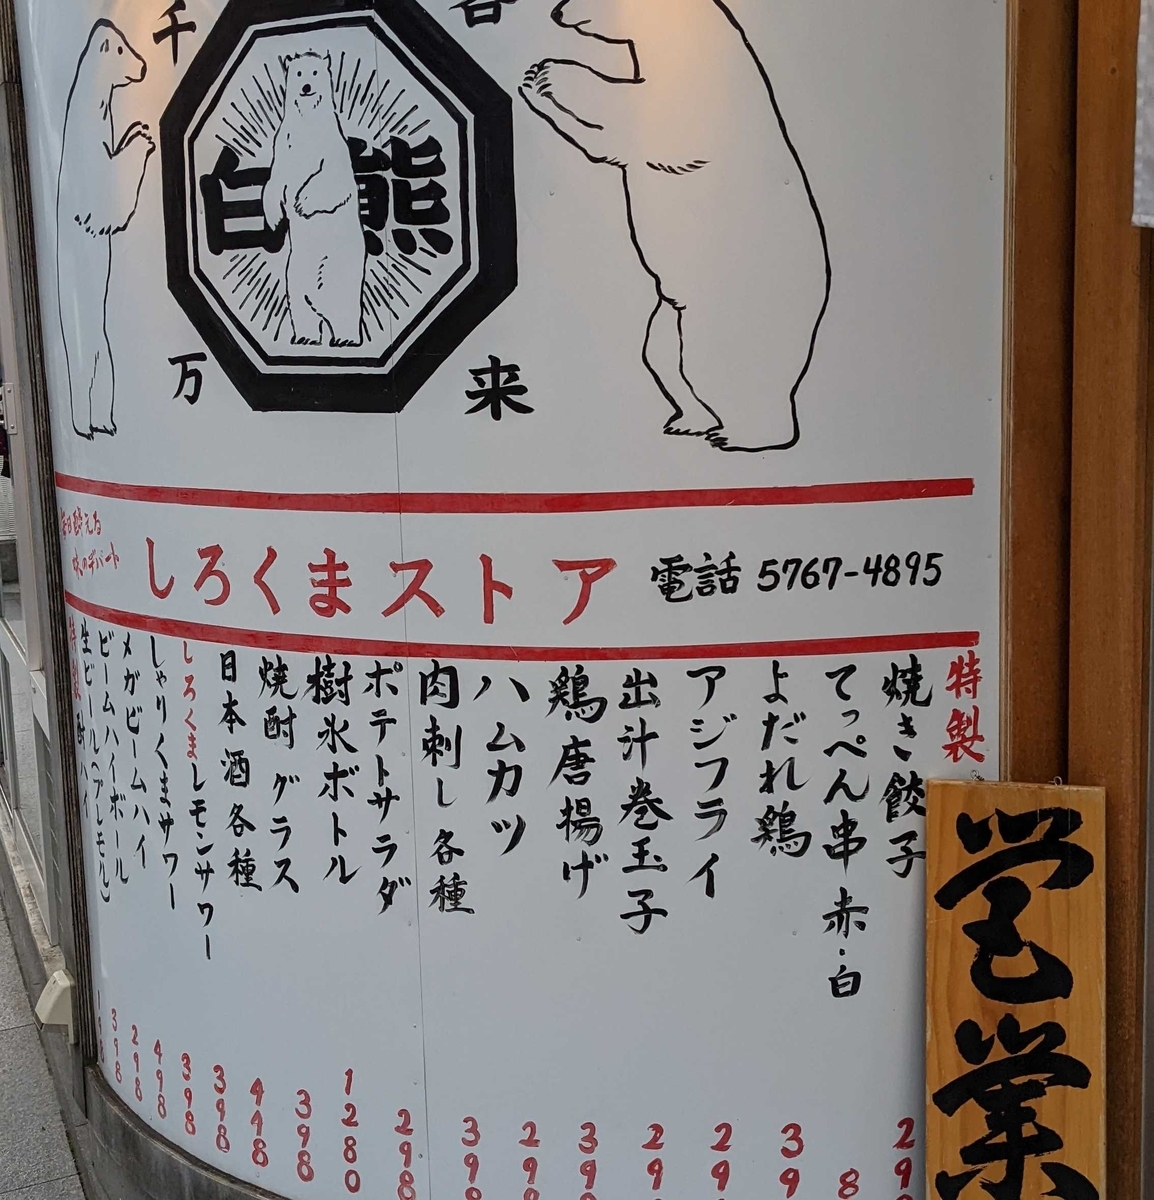 千客
白熊
万来
毎日酔える
味のデパート
しろくまストア
電話 5767-4895
特製
焼き餃子
てっぺん串 赤・白
よだれ鶏
アジフライ
出汁巻玉子
鶏唐揚げ
ハムカツ
肉刺し各種
ポテトサラダ
樹氷ボトル
焼酎グラス
日本酒各種
しろくまレモンサワー
しゃりくまサワー
メガビームハイ
ビームハイボール
生ビール(プレモル)
特製酎ハイ
29
8
39
29
29
39
298
398
298
1280
398
448
398
398
498
298
398
営業